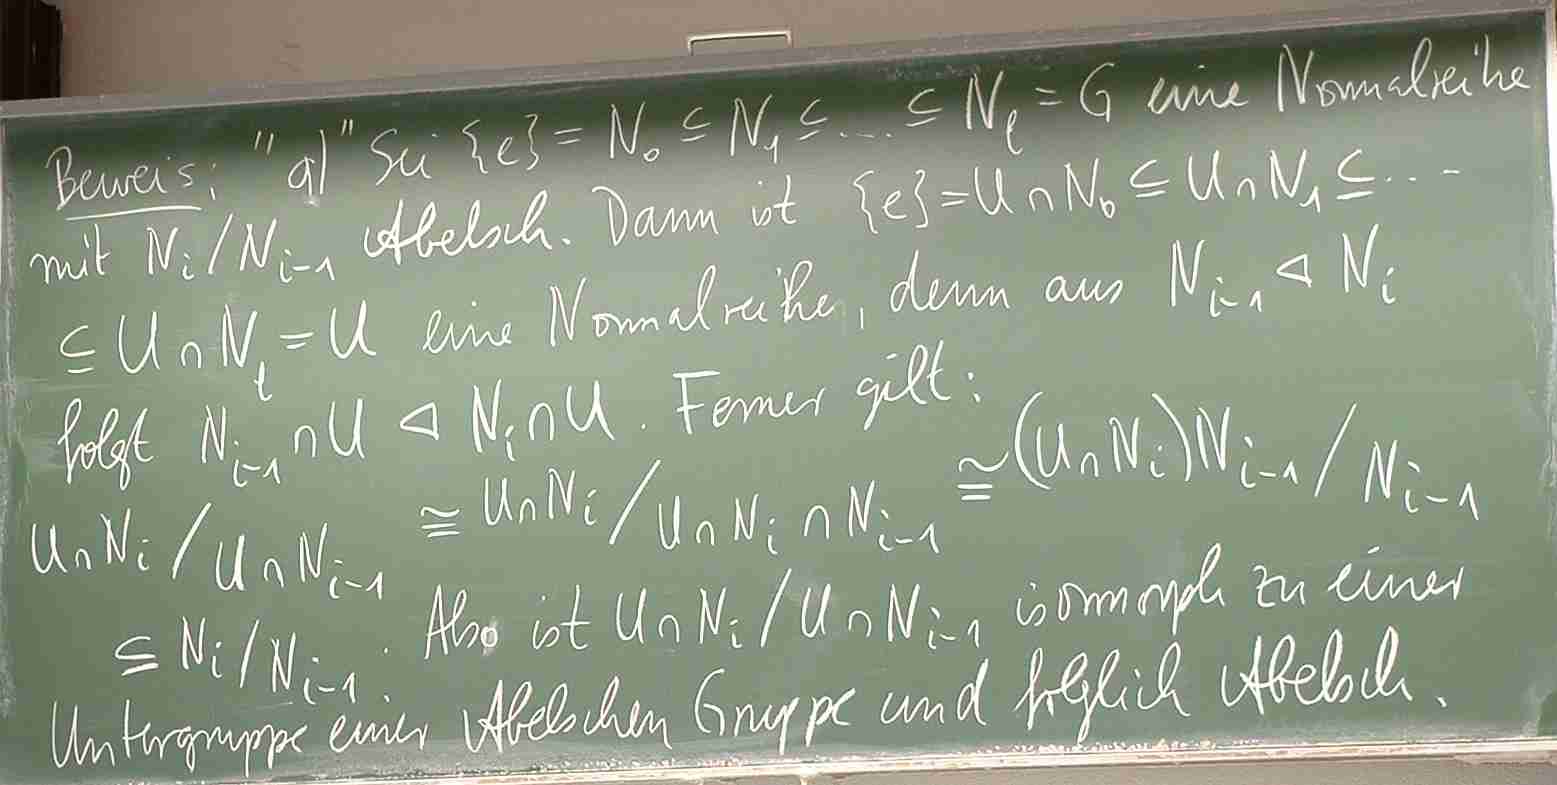 Beweis: "a)" Sei {e} = N₀ ⊆ N₁ ⊆ ... ⊆ Nₗ = G eine Normalreihe
mit Nᵢ/Nᵢ₋₁ Abelsch. Dann ist {e} = U∩N₀ ⊆ U∩N₁ ⊆ ...
⊆ U∩Nₗ = U eine Normalreihe, denn aus Nᵢ₋₁ ⊲ Nᵢ
folgt Nᵢ₋₁∩U ⊲ Nᵢ∩U. Ferner gilt:
U∩Nᵢ/U∩Nᵢ₋₁ ≅ U∩Nᵢ/U∩Nᵢ∩Nᵢ₋₁ ≅ (U∩Nᵢ)Nᵢ₋₁/Nᵢ₋₁
⊆ Nᵢ/Nᵢ₋₁. Also ist U∩Nᵢ/U∩Nᵢ₋₁ isomorph zu einer
Untergruppe einer Abelschen Gruppe und folglich Abelsch.